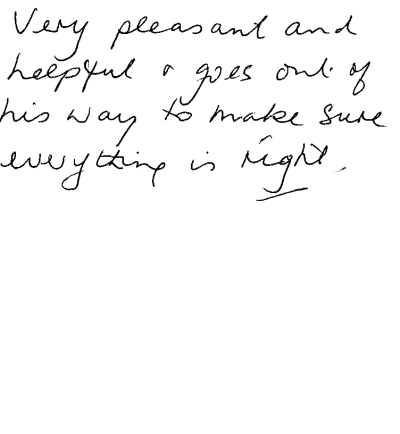 Very pleasant and
helpful & goes out of
his way to make sure
everything is right.